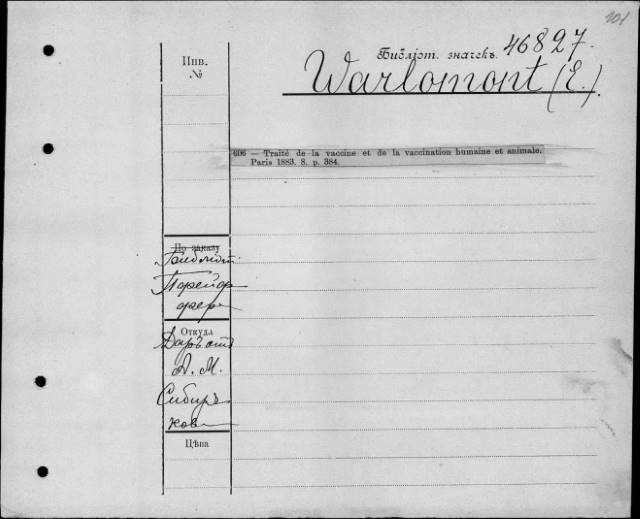 101
Инв.
№
Библіот. значекъ. 46827.
Warlomont (E.).
606 — Traité de la vaccine et de la vaccination humaine et animale.
Paris 1883. 8. p. 384.
По заказу
Библіот.
Пфейф
фер
Откуда
Даръ отъ
А. М.
Сибиря
кова
Цѣна